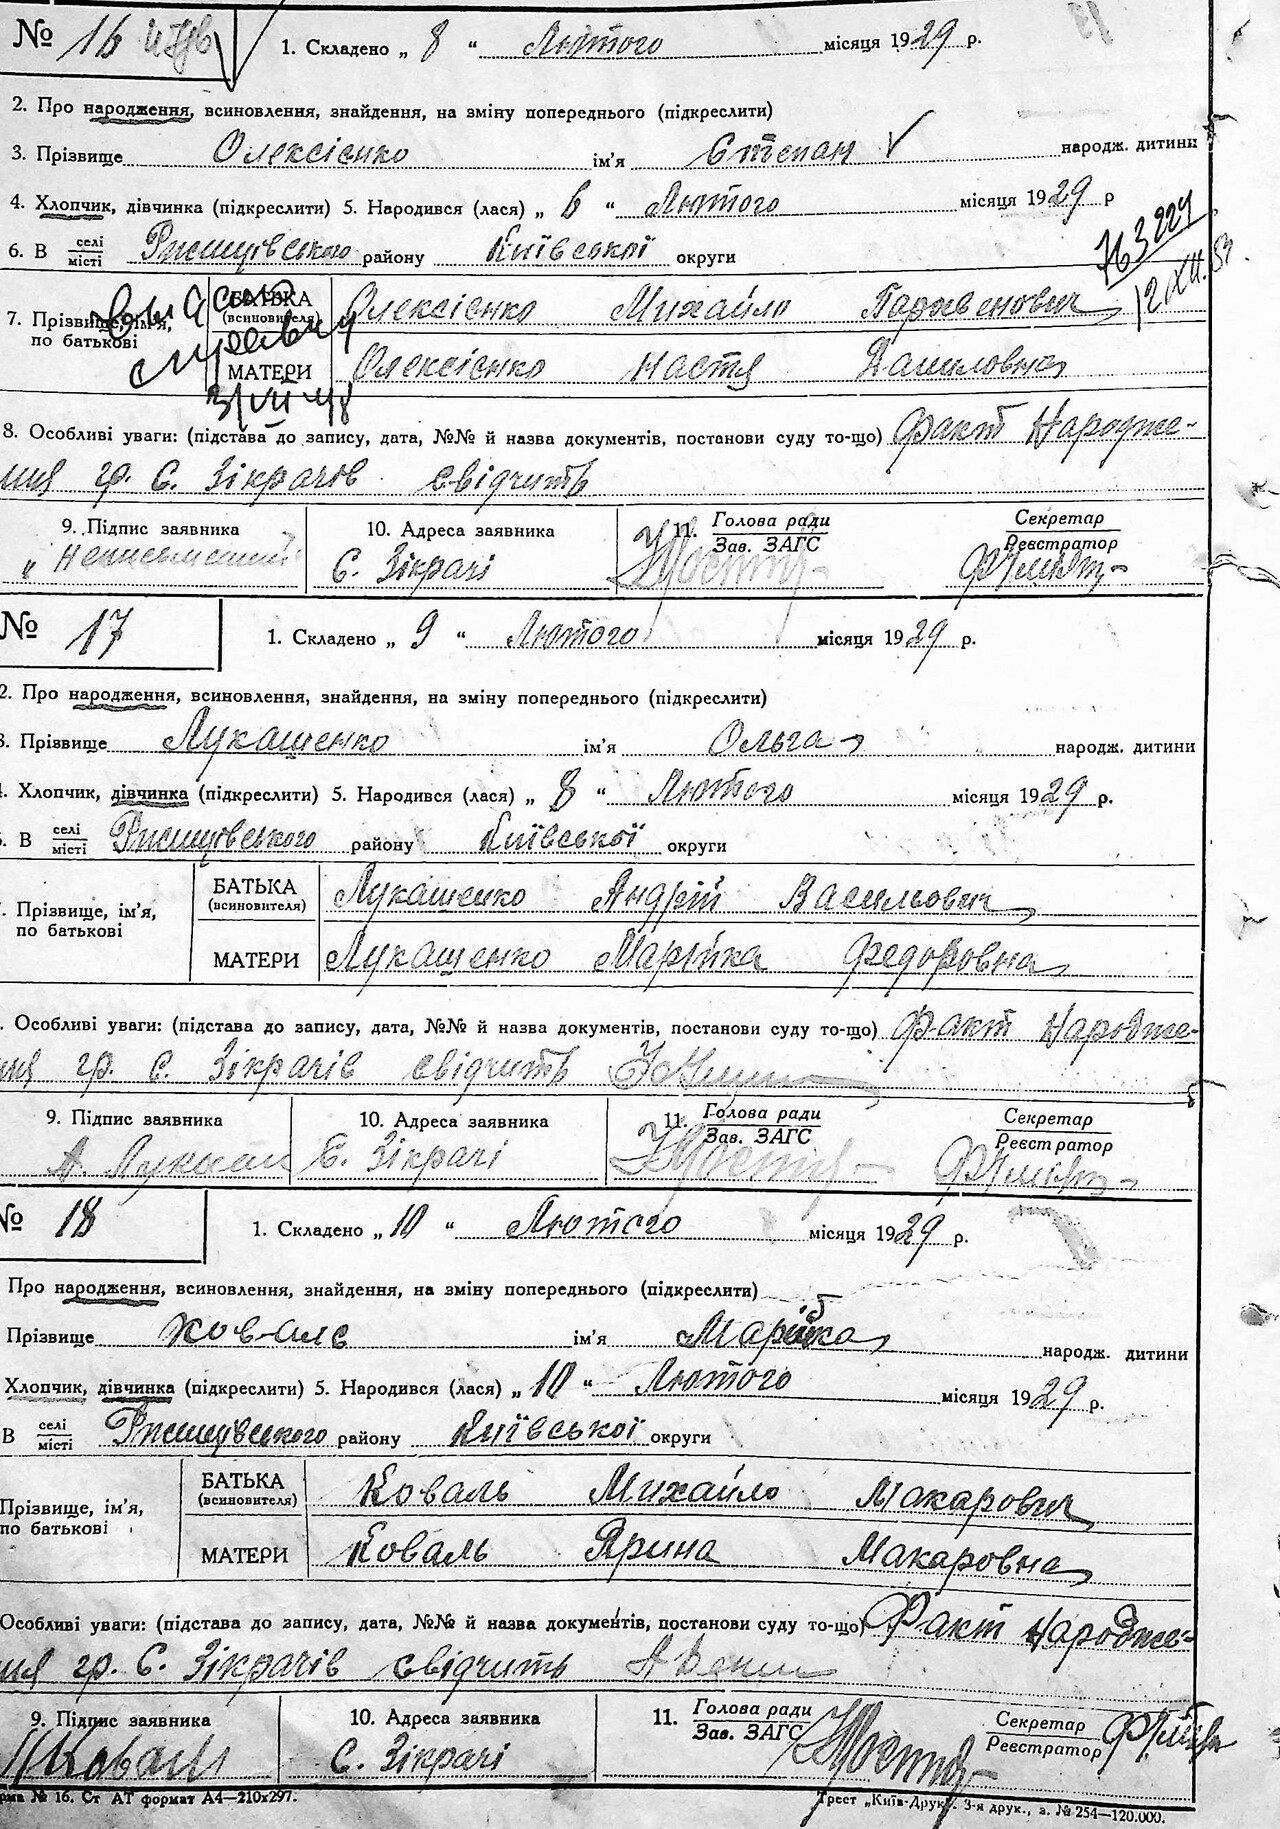 № 16 1. Складено „ 8 “ Лютого місяця 1929 р.
2. Про народження, всиновлення, знайдення, на зміну попереднього (підкреслити)
3. Прізвище Олексієнко ім'я Степан народж. дитини
4. Хлопчик, дівчинка (підкреслити) 5. Народився (лася) „ 6 “ Лютого місяця 1929 р
6. В селі місті Ржищівського району Київської округи
7. Прізвище, ім'я, по батькові
БАТЬКА (всиновителя) Олексієнко Михайло Пархвенович
МАТЕРИ Олексієнко Настя Даниловна
8. Особливі уваги: (підстава до запису, дата, №№ й назва документів, постанови суду то-що) Факт Народже-
ния гр. С. Зікрачів свідчить
9. Підпис заявника 10. Адреса заявника 11. Голова ради Зав. ЗАГС Секретар Реєстратор
С. Зікрачі
№ 17 1. Складено „ 9 “ Лютого місяця 1929 р.
2. Про народження, всиновлення, знайдення, на зміну попереднього (підкреслити)
3. Прізвище Лукашенко ім'я Ольга народж. дитини
Хлопчик, дівчинка (підкреслити) 5. Народився (лася) „ 8 “ Лютого місяця 1929 р.
В селі місті Ржищівського району Київської округи
Прізвище, ім'я, по батькові
БАТЬКА (всиновителя) Лукашенко Андрій Васильович
МАТЕРИ Лукашенко Марійка Федоровна
Особливі уваги: (підстава до запису, дата, №№ й назва документів, постанови суду то-що) Факт Народже-
ния гр. С. Зікрачів свідчить
9. Підпис заявника 10. Адреса заявника 11. Голова ради Зав. ЗАГС Секретар Реєстратор
С. Зікрачі
№ 18 1. Складено „ 10 “ Лютого місяця 1929 р.
Про народження, всиновлення, знайдення, на зміну попереднього (підкреслити)
Прізвище Коваль ім'я Марійка народж. дитини
Хлопчик, дівчинка (підкреслити) 5. Народився (лася) „ 10 “ Лютого місяця 1929 р.
В селі місті Ржищівського району Київської округи
Прізвище, ім'я, по батькові
БАТЬКА (всиновителя) Коваль Михайло Макарович
МАТЕРИ Коваль Ярина Макаровна
Особливі уваги: (підстава до запису, дата, №№ й назва документів, постанови суду то-що) Факт Народже-
ния гр. С. Зікрачів свідчить
9. Підпис заявника 10. Адреса заявника 11. Голова ради Зав. ЗАГС Секретар Реєстратор
С. Зікрачі
№ 16. Ст АТ формат А4—210х297. Трест „Київ-Друк“. 3-я друк., з. № 254—120.000.